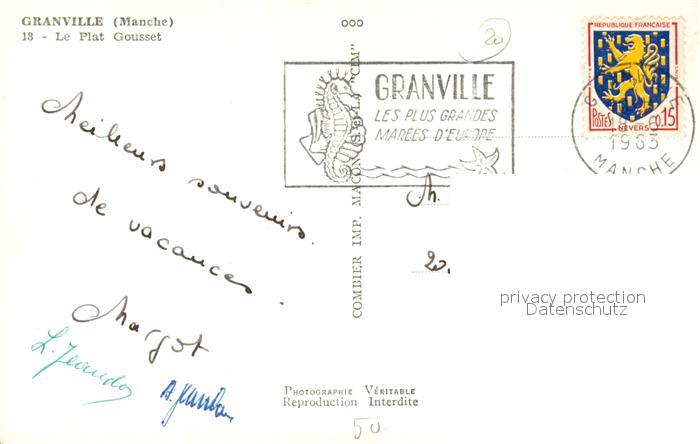 GRANVILLE (Manche)
18 - Le Plat Gousset
000
20
GRANVILLE
LES PLUS GRANDES
MARÉES D'EUROPE
REPUBLIQUE FRANÇAISE
POSTES 0,15
NEVERS
1963
MANCHE
Meilleurs souvenirs
de vacances.
Margot
COMBIER IMP. MACON (S.-&-L.) "CIM"
20,
privacy protection
Datenschutz
PHOTOGRAPHIE VÉRITABLE
Reproduction Interdite
50